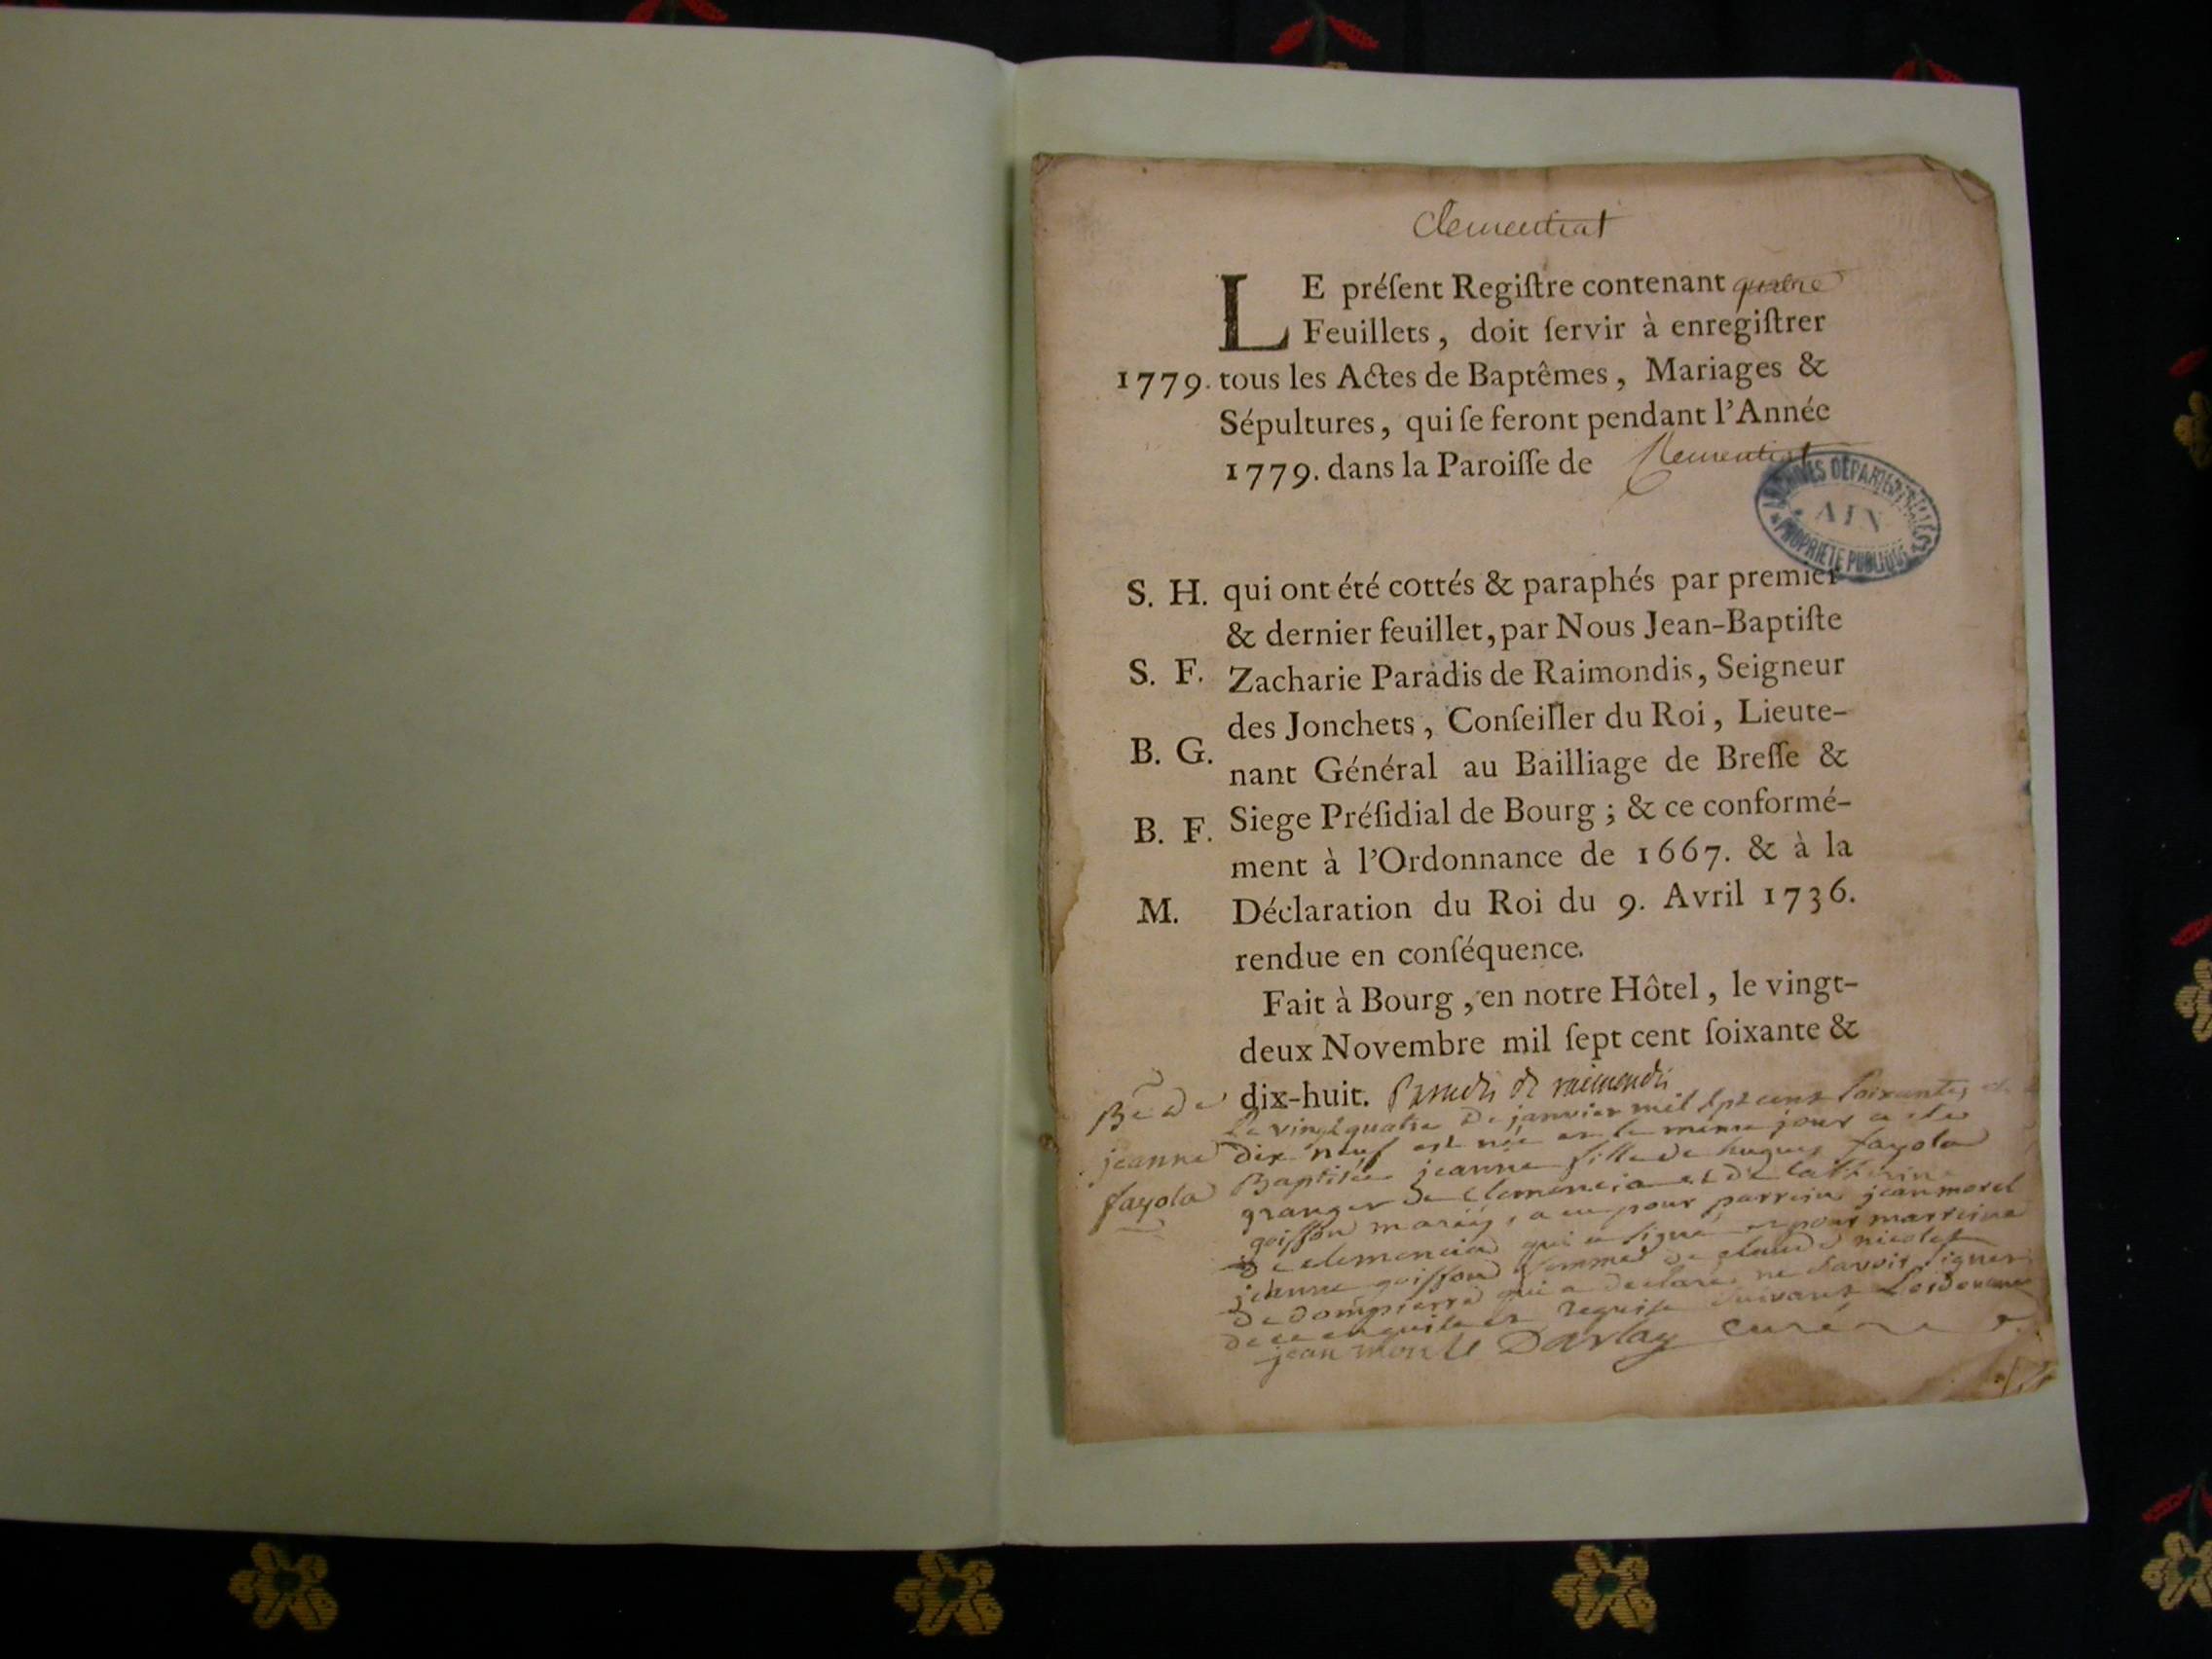 Clementiat
LE préſent Regiſtre contenant quatre
Feuillets, doit ſervir à enregiſtrer
1779. tous les Actes de Baptêmes, Mariages &
Sépultures, qui ſe feront pendant l'Année
1779. dans la Paroiſſe de Clementiat
ARCHIVES DÉPARTEMENTALES
AIN
PROPRIÉTÉ PUBLIQUE
S. H. qui ont été cottés & paraphés par premier
& dernier feuillet, par Nous Jean-Baptiſte
S. F. Zacharie Paradis de Raimondis, Seigneur
des Jonchets, Conſeiller du Roi, Lieute-
B. G. nant Général au Bailliage de Breſſe &
B. F. Siege Préſidial de Bourg; & ce conformé-
ment à l'Ordonnance de 1667. & à la
M. Déclaration du Roi du 9. Avril 1736.
rendue en conſéquence.
Fait à Bourg, en notre Hôtel, le vingt-
deux Novembre mil ſept cent ſoixante &
dix-huit. Paradis de raimondis
Le vingt quatre De janvier mil sept cent soixante et
jeanne Dix neuf est née et le même jour a eté
fayola Baptisée jeanne fille de hugues fayola
granger De Clemencia et De Catherine
goiffon mariés, a eu pour parrein jean morel
De clemencia qui a signé et pour marreine
jeanne goiffon femme de claude nicolas
De Dompierre qui a Declaré ne savoir signer
De ce enquise et requise suivant L'ordonnance
jean morel Darlay curé